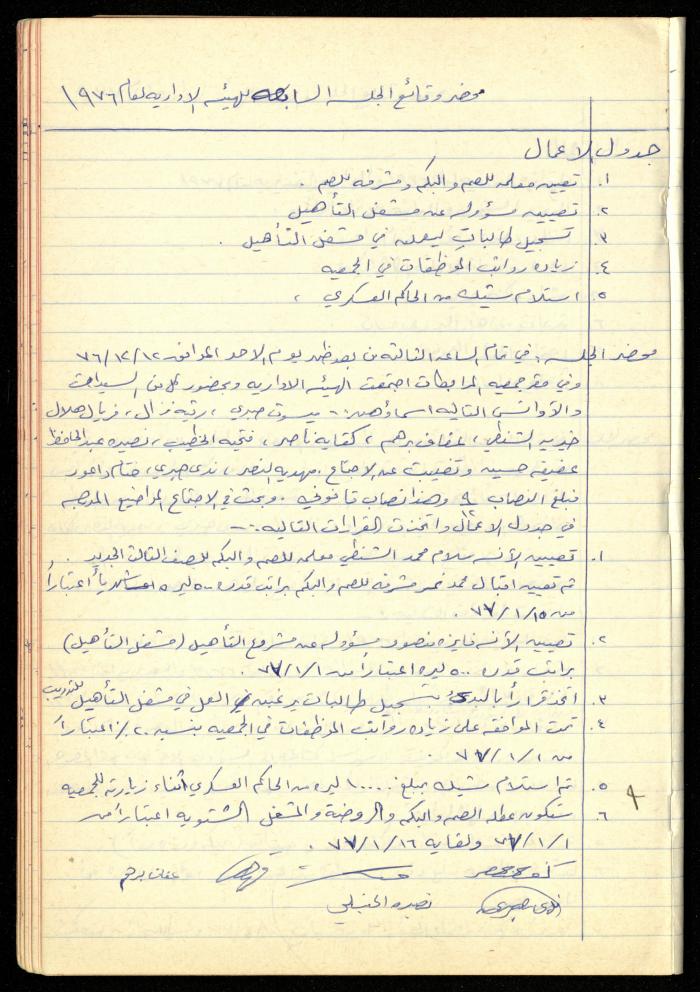 محضر وقائع الجلسه السابعه للهيئه الاداريه لعام ١٩٧٦
جدول الاعمال
١. تعيين معلمه للصم والبكم ومشرفه للصم .
٢. تعيين مسؤوله عن مشغل التأهيل
٣. تسجيل طالبات ليعملن في مشغل التأهيل .
٤. زياده رواتب الموظفات في الجمعيه
٥. استلام شيك من الحاكم العسكري .
محضر الجلسه : في تمام الساعه الثالثه من بعد ظهر يوم الاحد الموافق ٧٦/١٢/١٢
وفي مقر جمعيه المرابطات اجتمعت الهيئه الاداريه وبحضور كل من السيدات
والآوانس التاليه اسماؤهن :- ميسون صبري ، رتيبه نزال ، فريال هلال
خديجه الشنطي ، عفاف برهم ، كفايه ناصر ، فتحيه الخطيب ، نصيره عبد الحافظ
عفيفه حسين وتغيبت عن الاجتماع . مهديه النصر ، ندى صبري ، ختام داعور
فبلغ النصاب ٩/١٢ وهذا نصاب قانوني . وبحث في الاجتماع المواضيع المدرجه
في جدول الاعمال واتخذت القرارات التاليه :-
١. تعيين الآنسه سلام محمد الشنطي معلمه للصم والبكم للصف الثالث الجديد .
ثم تعيين اقبال محمد نمر مشرفه للصم والبكم براتب قدره ٥٠٠ ليره شهرياً اعتباراً
من ٧٧/١/١٥ .
٢. تعيين الآنسه فايزه منصور مسؤوله عن مشروع التأهيل (مشغل التأهيل)
براتب قدره ٥٠٠ ليره اعتباراً من ٧٧/١/١ .
٣. اتخذ قراراً بالبدء بتسجيل طالبات يرغبن في العمل في مشغل التأهيل للتدريب
٤. تمت الموافقه على زياده رواتب الموظفات في الجمعيه بنسبه ٢٠٪ اعتباراً
من ٧٧/١/١ .
٥. تم استلام شيك بمبلغ ١٠٠٠٠ ليره من الحاكم العسكري أثناء زيارته للجمعيه
٦. ستكون عطله الصم والبكم والروضة والمشغل الشتويه اعتباراً من
٧٧/١/١ ولغايه ٧٧/١/١٦ .
عفاف برهم
ندى صبري نصيره الحنبلي